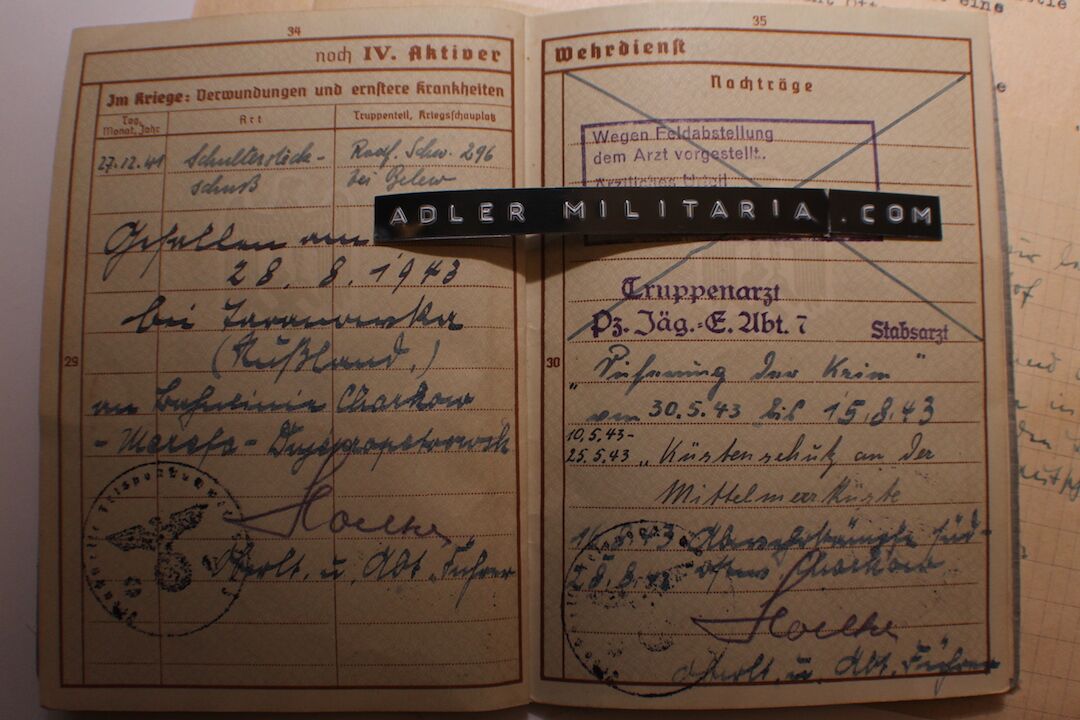 34
noch IV. Aktiver
Im Kriege: Verwundungen und ernstere Krankheiten
Tag, Monat, Jahr
Art
Truppenteil, Kriegsschauplatz
27.12.41 Schultersteck- Radf. Schw. 296
schuß bei Belew
Gefallen am
28. 8. 1943
bei Taranowka
(Rußland.)
an Bahnlinie Charkow
- Merefa - Dnjepropetrowsk
Oberlt. u. Abt. Führer
29
35
Wehrdienst
Nachträge
Wegen Feldabstellung
dem Arzt vorgestellt.
Ärztliches Urteil
ADLER MILITARIA .COM
Truppenarzt
Pz. Jäg.-E. Abt. 7 Stabsarzt
30
" der Krim "
vom 30.5.43 bis 15.8.43
10.5.43-
25.5.43 „ Küstenschutz an der
Mittelmeerküste
43 Abwehrkämpfe süd-
28.8.43 Charkow
Oberlt. u. Abt. Führer
eine